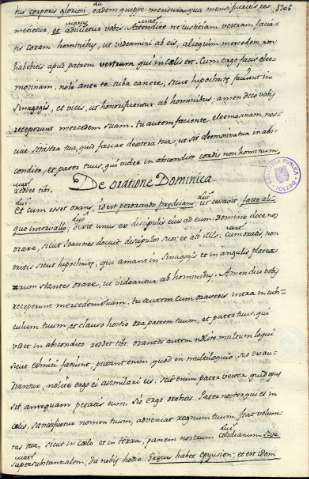 tis corporis alarieni, eadem quippe mensura qua mensi fueritis re-
metietur, et adiicietur vobis. Attendite ne iustitiam vestram facia-
tis coram hominibus, ut videamini ab eis, alioquin mercedem non
habebitis apud patrem vestrum qui in coelis est. Cum ergo facis elee-
mosinam, noli ante te tuba canere, sicut hipochritę faciunt in
Sinagogis, et vicis, ut honorificentur ab hominibus, amen dico vobis
receperunt mercedem suam. tu autem faciente eleemosinam, nes-
ciat sinistra tua, quid faciat dextera tua, ut sit eleemosina tua in abs-
condito, et pater tuus qui videt in abscondito
reddet tibi.
De oratione Dominica
Et cum esset orans,
dixit unus ex discipulis eius ad eum. Domine doce nos
orare, sicut Ioannes docuit discipulos suos et ait illis. cum oratis, non
eritis sicut hipochritę, qui amant in Sinagogis et in angulis platea-
rum stantes orare, ut videantur ab hominibus. Amen dico vobis
receperunt mercedem suam. tu autem cum oraveris intra in cubi-
culum tuum et clauso hostio ora patrem tuum, et pater tuus qui
videt in abscondito reddet tibi. orantes autem nolite multum loqui
sicut ethnici faciunt, putant enim quod in multiloquio suo exau-
diantur, nolite ergo eis assimilari. scit enim pater vester quid opus
sit antequam petatis eum. Sic ergo orabitis. Pater noster qui es in
coelis, sanctificetur nomen tuum, adveniat regnum tuum, fiat volun-
tas tua, sicut in coelo et in terra, panem nostrum cotidianum
supersubstantialem, da nobis hodie.